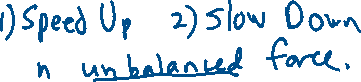 1) Speed Up 2) Slow Down
n unbalanced force.